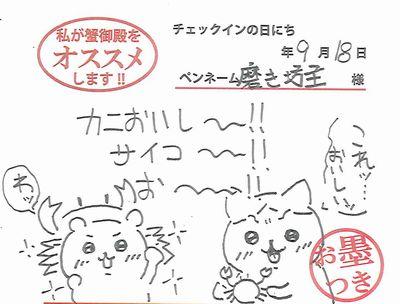 私が蟹御殿を
オススメ
します!!
チェックインの日にち
年9月18日
ペンネーム 磨き坊主 様
カニおいし〜!!
サイコ〜!!
お〜!!
わッ
これッ…
おいしい…
お墨
つき